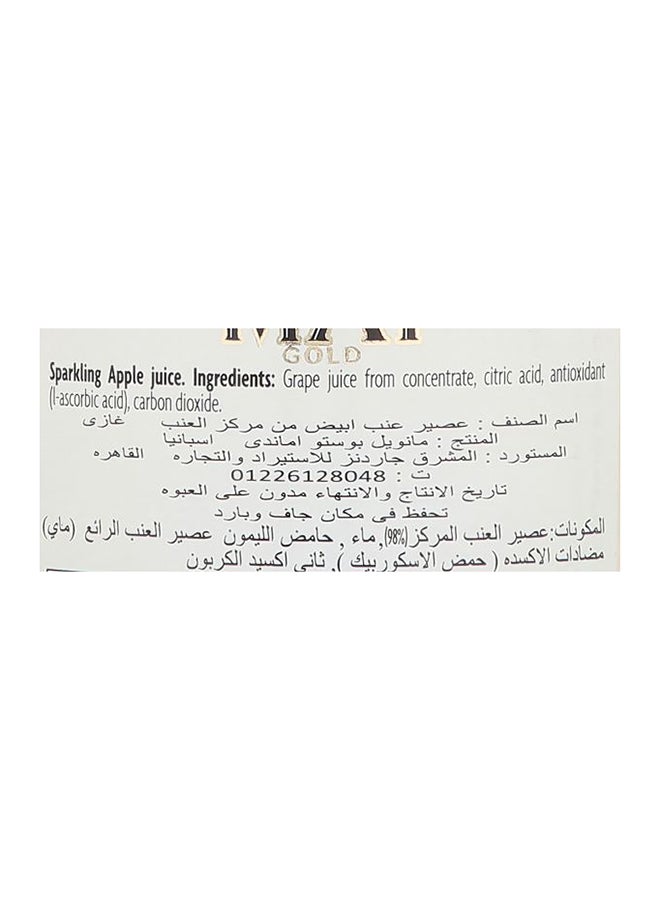 GOLD
Sparkling Apple juice. Ingredients: Grape juice from concentrate, citric acid, antioxidant
(l-ascorbic acid), carbon dioxide.
اسم الصنف : عصير عنب ابيض من مركز العنب غازى
المنتج : مانويل بوستو اماندى اسبانيا
المستورد : المشرق جاردنز للاستيراد والتجاره القاهره
ت : 01226128048
تاريخ الانتاج والانتهاء مدون على العبوه
تحفظ فى مكان جاف وبارد
المكونات:عصير العنب المركز(98%),ماء , حامض الليمون عصير العنب الرائع (ماي)
مضادات الاكسده ( حمض الاسكوربيك ), ثانى اكسيد الكربون